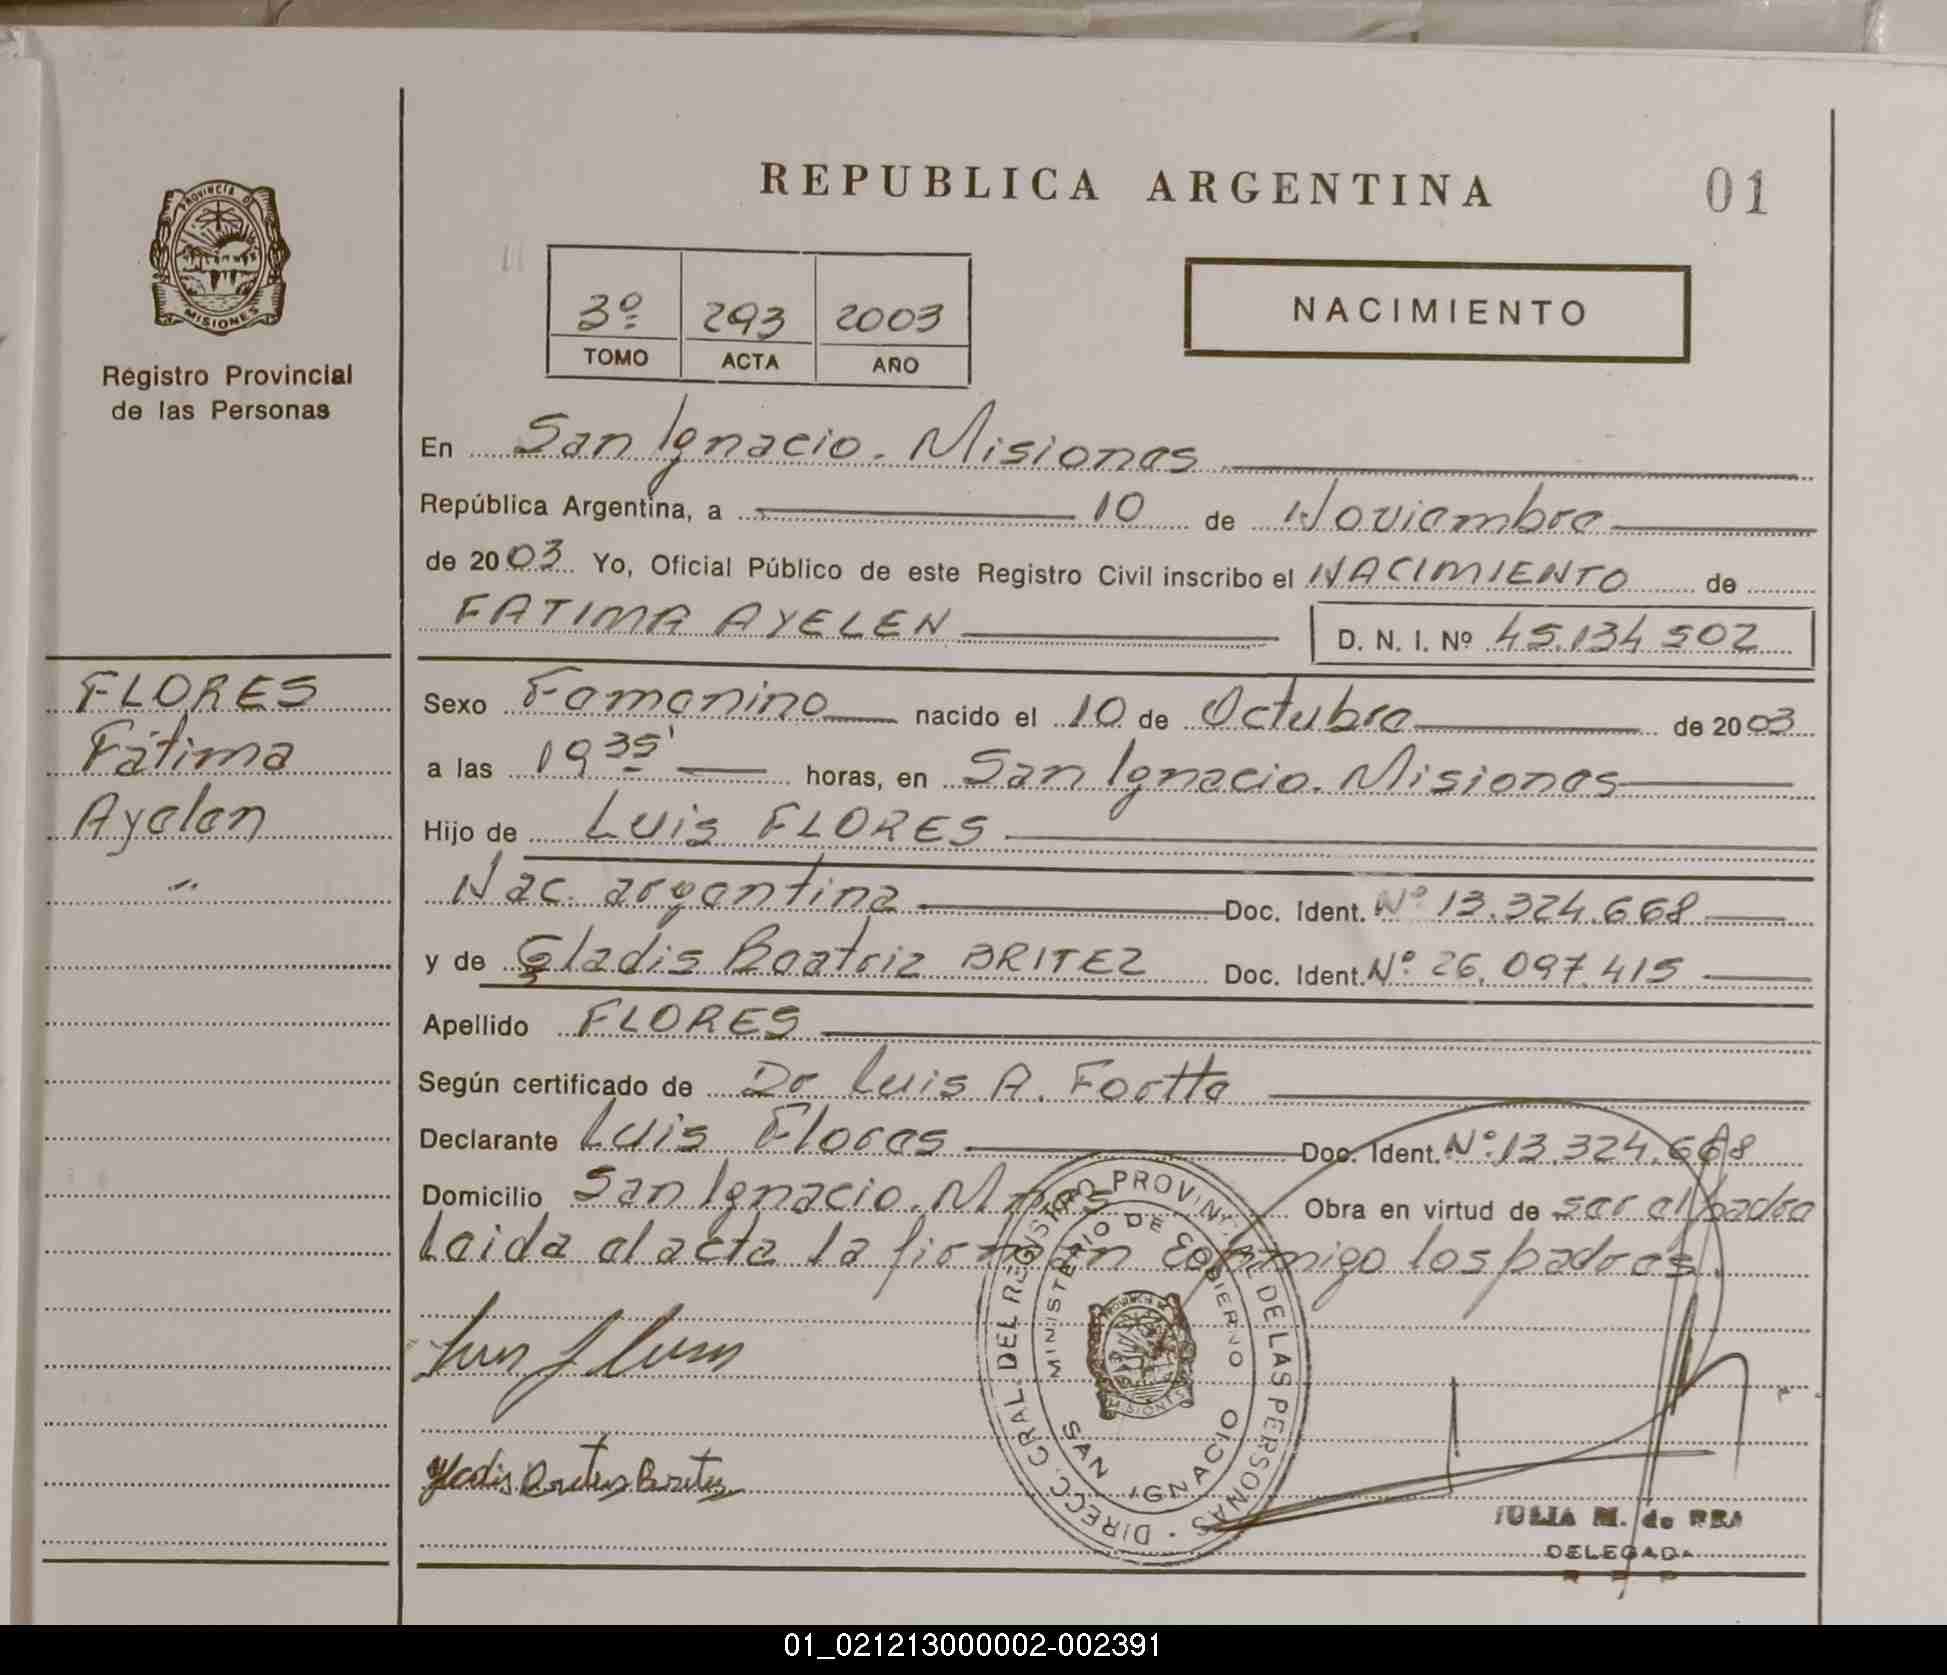 REPUBLICA ARGENTINA
01
PROVINCIA D
MISIONES
Registro Provincial
de las Personas
3º 293 2003
TOMO ACTA AÑO
NACIMIENTO
En San Ignacio. Misiones
República Argentina, a 10 de Noviembre
de 2003 Yo, Oficial Público de este Registro Civil inscribo el NACIMIENTO de
FATIMA AYELEN
D. N. I. Nº 45.134.502
FLORES
Fátima
Ayelen
Sexo Femenino nacido el 10 de Octubre de 2003
a las 19 35' horas, en San Ignacio. Misiones
Hijo de Luis FLORES
Nac. argentina Doc. Ident. Nº 13.324.668
y de Gladis Beatriz BRITEZ Doc. Ident. Nº. 26.097.415
Apellido FLORES
Según certificado de Dr Luis A. Foette
Declarante Luis Flores Doc. Ident. Nº. 13.324.668
Domicilio San Ignacio. Mnes Obra en virtud de ser el padre
Leida el acta la firman conmigo los padres.
DIRECC. GRAL. DEL REGISTRO PROVINCIAL DE LAS PERSONAS
MINISTERIO DE GOBIERNO
SAN IGNACIO
MISIONES
JULIA M. de
DELEGADA
01_021213000002-002391